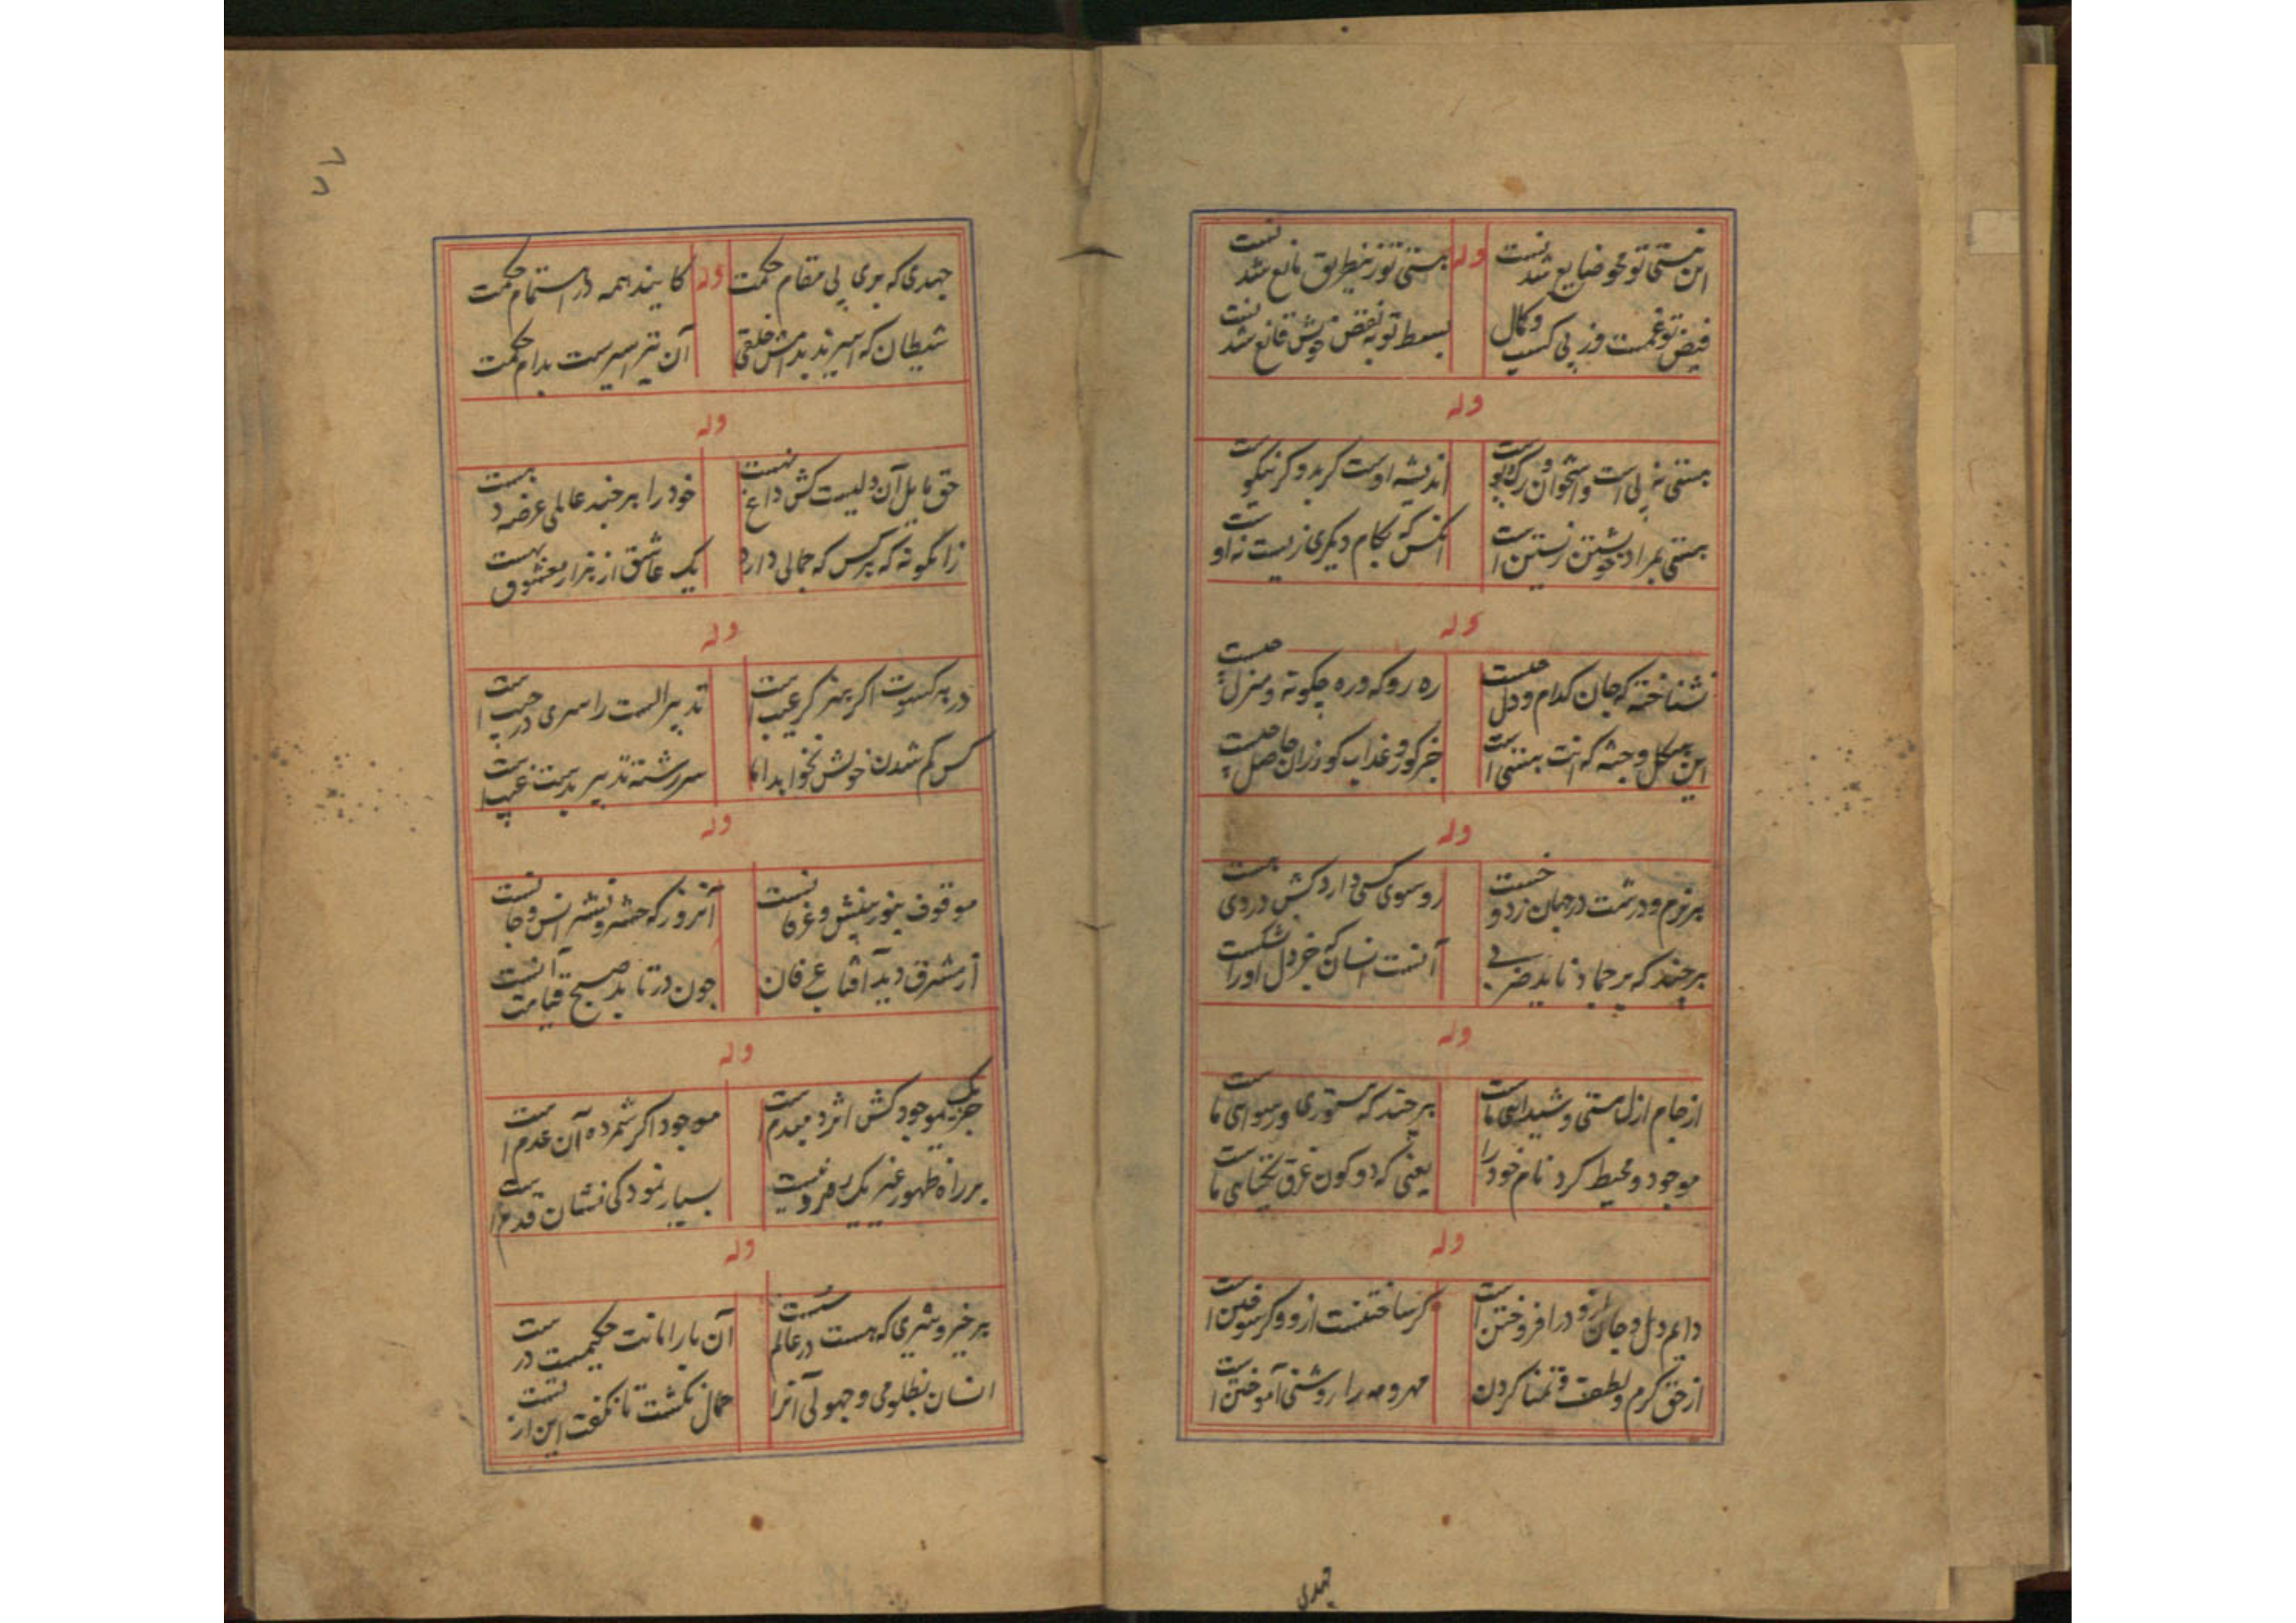 این نیستی تو محو ضایع شد نیست
وله
هستی تو زینطریق مانع شد نیست
فیض تو غمست وز پی کسب و کمال
بسط تو به نقض خویش قانع شد نیست
وله
هستی نه پی است و استخوان و رگ و پوست
اندیشه اوست کر بد و کر نیکوست
هستی بمراد خویشتن زیستن است
انکس که بکام دیکری زیست نه اوست
وله
نشناخته که جان کدام و دل چیست
ره رو که و ره چکونه و منزل چیست
این هیکل و جثه که انت هستی است
جز کور و عذاب کور زان حاصل چیست
وله
هر نرم و درشت در جهان زد و خست
رو سوی کسی دارد کش دروی هست
هر چند که بر جماد ناید ضربی
آنست انسان که جز دل اورا نشکست
وله
از جام ازل مستی و شیدایی ماست
هر چند که مستوری و رسوایی ماست
موجود و محیط کرد نام خود را
یعنی که دو کون غرق یکتایی ماست
وله
دایم دل و جان ازو در افروختن است
کر ساختنست ازو و کر سوختن است
از حق کرم و لطف تمنا کردن
مهر و مه را روشنی آموختن است
جهدی
جهدی که بری پی مقام حکمت
وله
کایند همه در استمام حکمت
شیطان که اسیرند بدامش خلقی
آن نیز اسیرست بدام حکمت
وله
حق مایل آن دلیست کش داغی هست
خود را بر چند عالمی عرضه دهست
زانگونه که هر کس که جمالی دارد
یک عاشق از هزار معشوق بهست
وله
در هر کسوت اکر هنر کر عیب است
تدبیر الست را سری در جیب است
کس کم شدن خویش نخواهد اما
سر رشته تدبیر بدست غیب است
وله
موقوف بنور بینش و عرفانست
آنروز که حشر و نشر انس و جانست
از مشرق دید آفتاب عرفان
چون در تابد صبح قیامت آنست
وله
جز یک موجود کش اثر دمبدم است
موجود اکر شمرده آن عدم است
بر راه ظهور غیر یک رهرو نیست
بسیار نمودکی نشان قدم است
وله
هر خیر و شری که هست در عالم
آن بار امانت حکیمیست درست
انسان بظلومی و جهولی آنرا
حمال نکشت تا نکفت این از تست